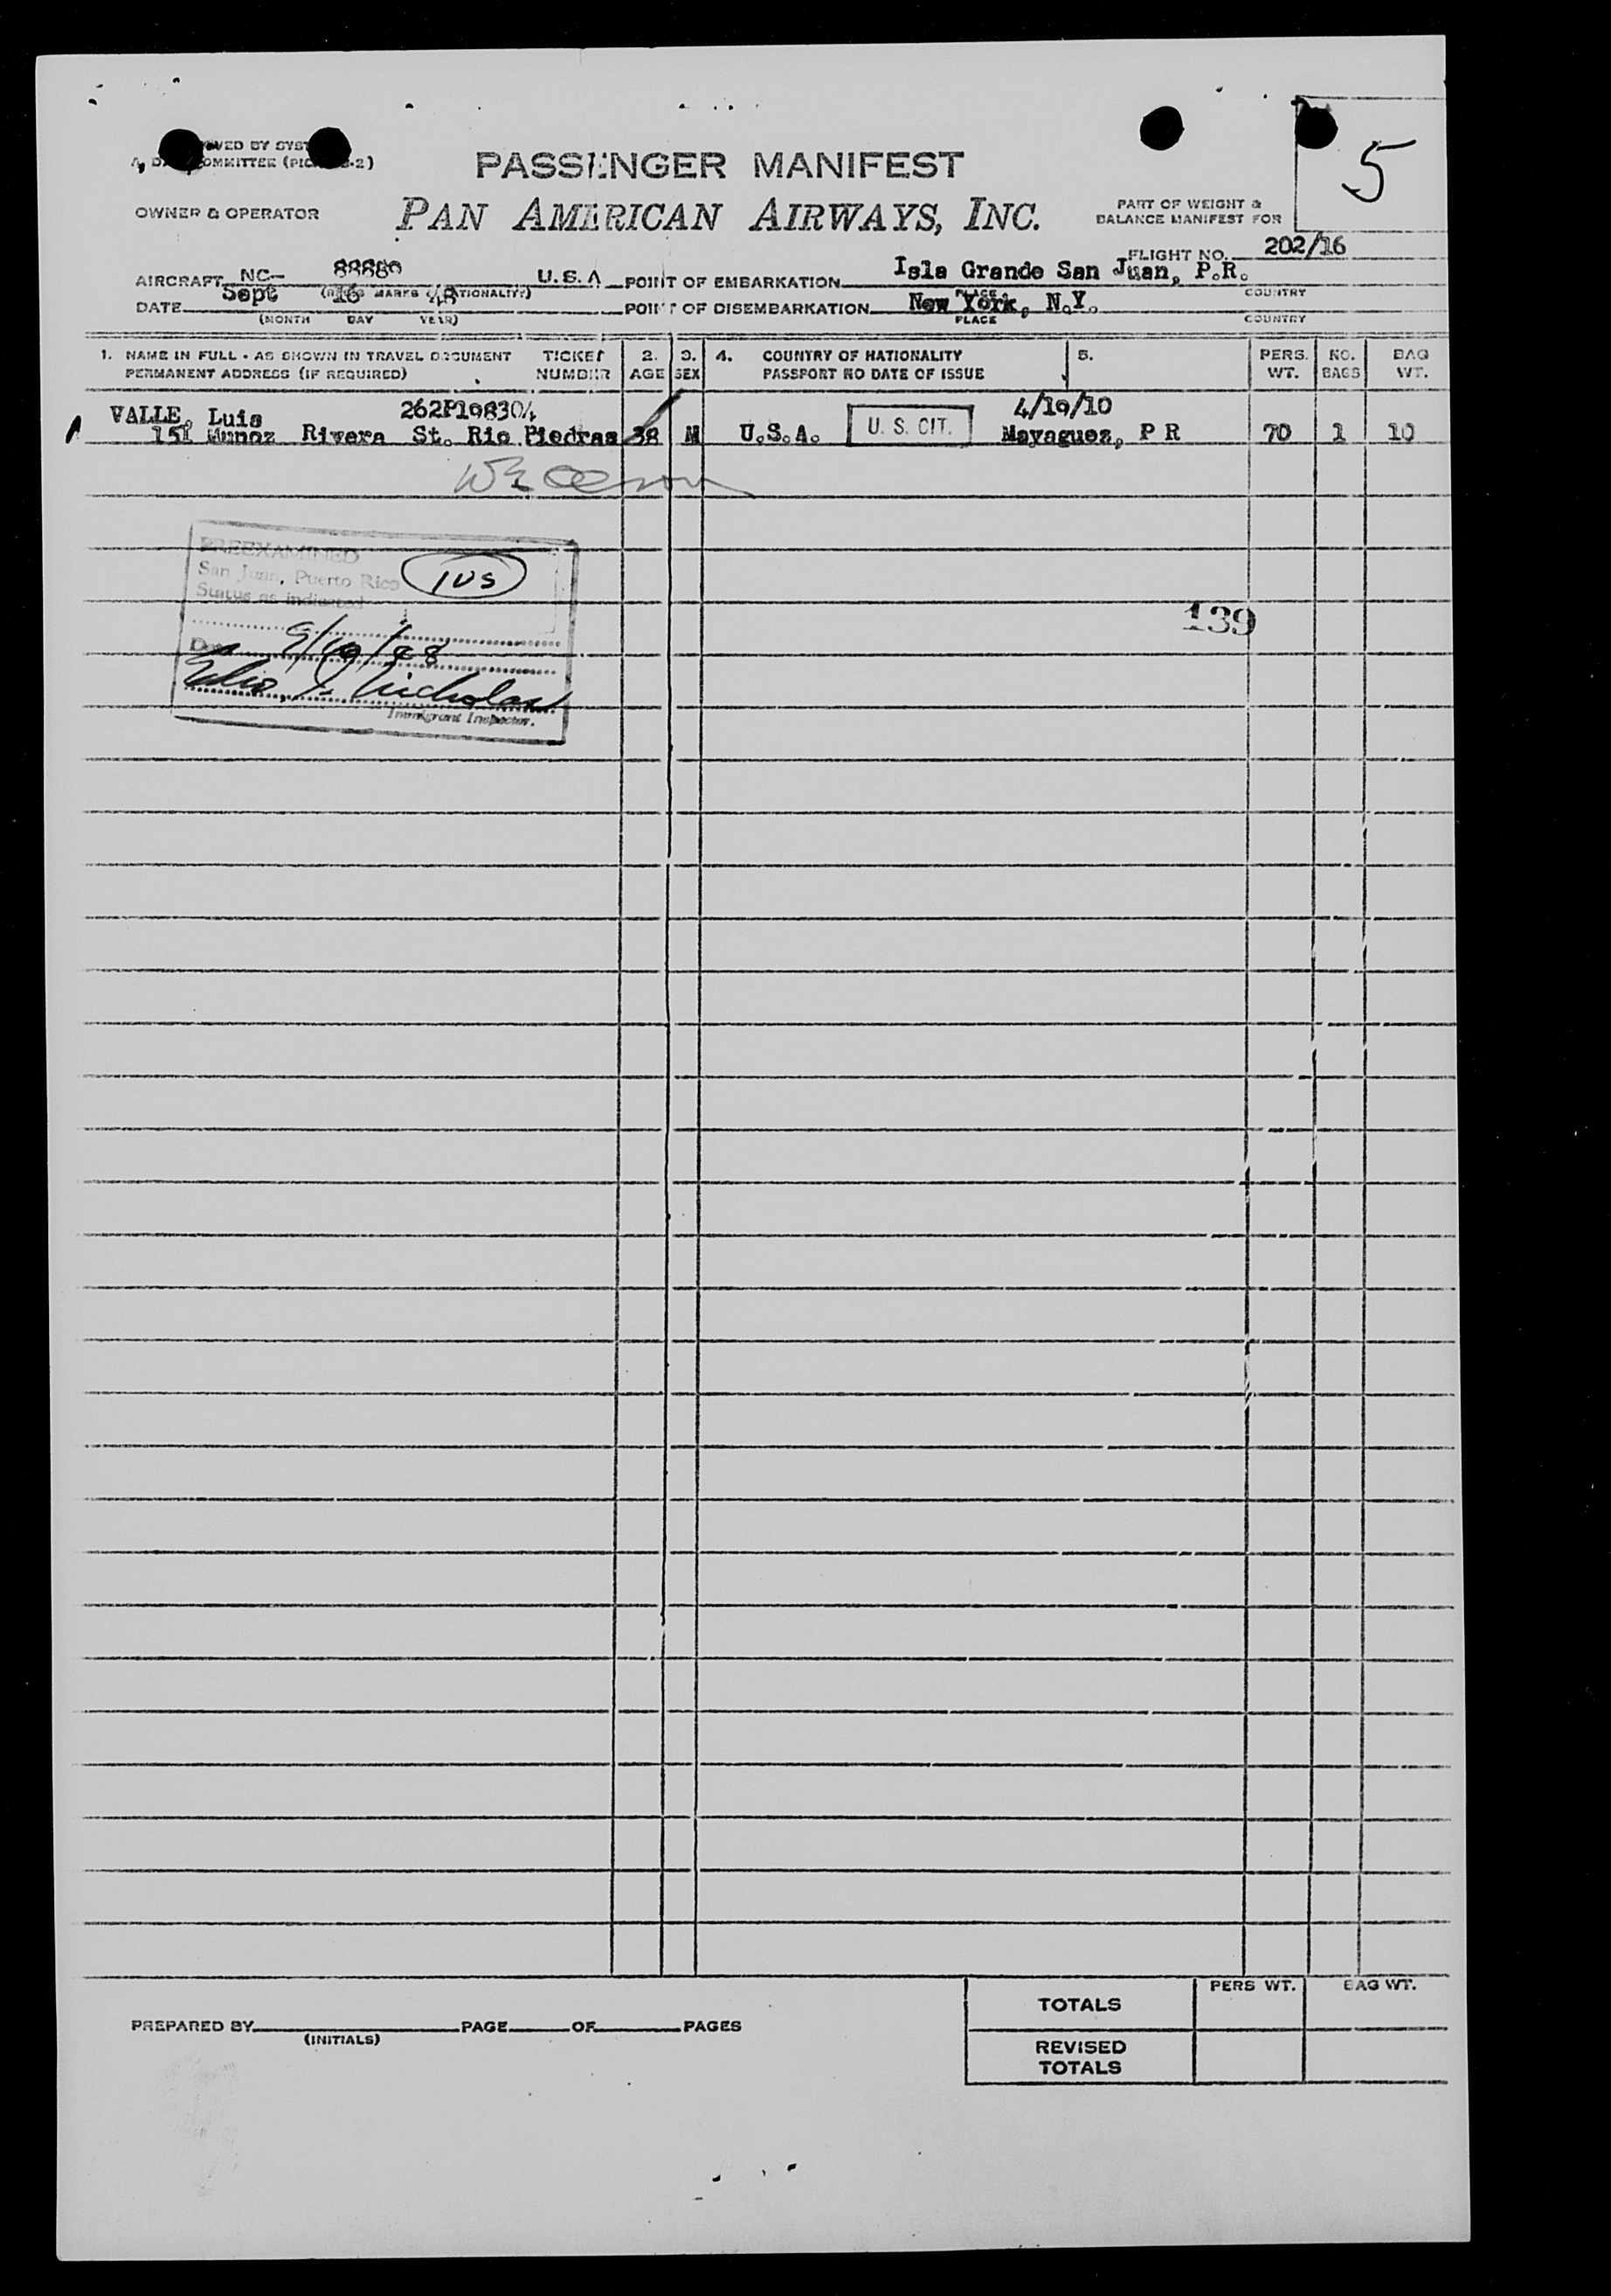 PASSENGER MANIFEST
5
OWNER & OPERATOR
PAN AMERICAN AIRWAYS, INC.
PART OF WEIGHT &
BALANCE MANIFEST FOR
FLIGHT NO. 202/16
AIRCRAFT NC- U.S.A POINT OF EMBARKATION Isla Grande San Juan, P.R.
PLACE COUNTRY
DATE Sept 16 48 POINT OF DISEMBARKATION New York, N.Y.
(MONTH DAY YEAR) PLACE COUNTRY
1. NAME IN FULL - AS SHOWN IN TRAVEL DOCUMENT TICKET 2. 3. 4. COUNTRY OF NATIONALITY 5. PERS. NO. BAG
PERMANENT ADDRESS (IF REQUIRED) NUMBER AGE SEX PASSPORT NO DATE OF ISSUE WT. BAGS WT.
VALLE, Luis 262P198304 4/19/10
151 Munoz Rivera St. Rio Piedras 38 M U.S.A. U. S. CIT. Mayaguez, P R 70 1 10
PREEXAMINED
San Juan, Puerto Rico 1US
Status as indicated
139
Date
Nicholas
Immigrant Inspector.
PERS WT. BAG WT.
TOTALS
PREPARED BY PAGE OF PAGES
(INITIALS)
REVISED
TOTALS